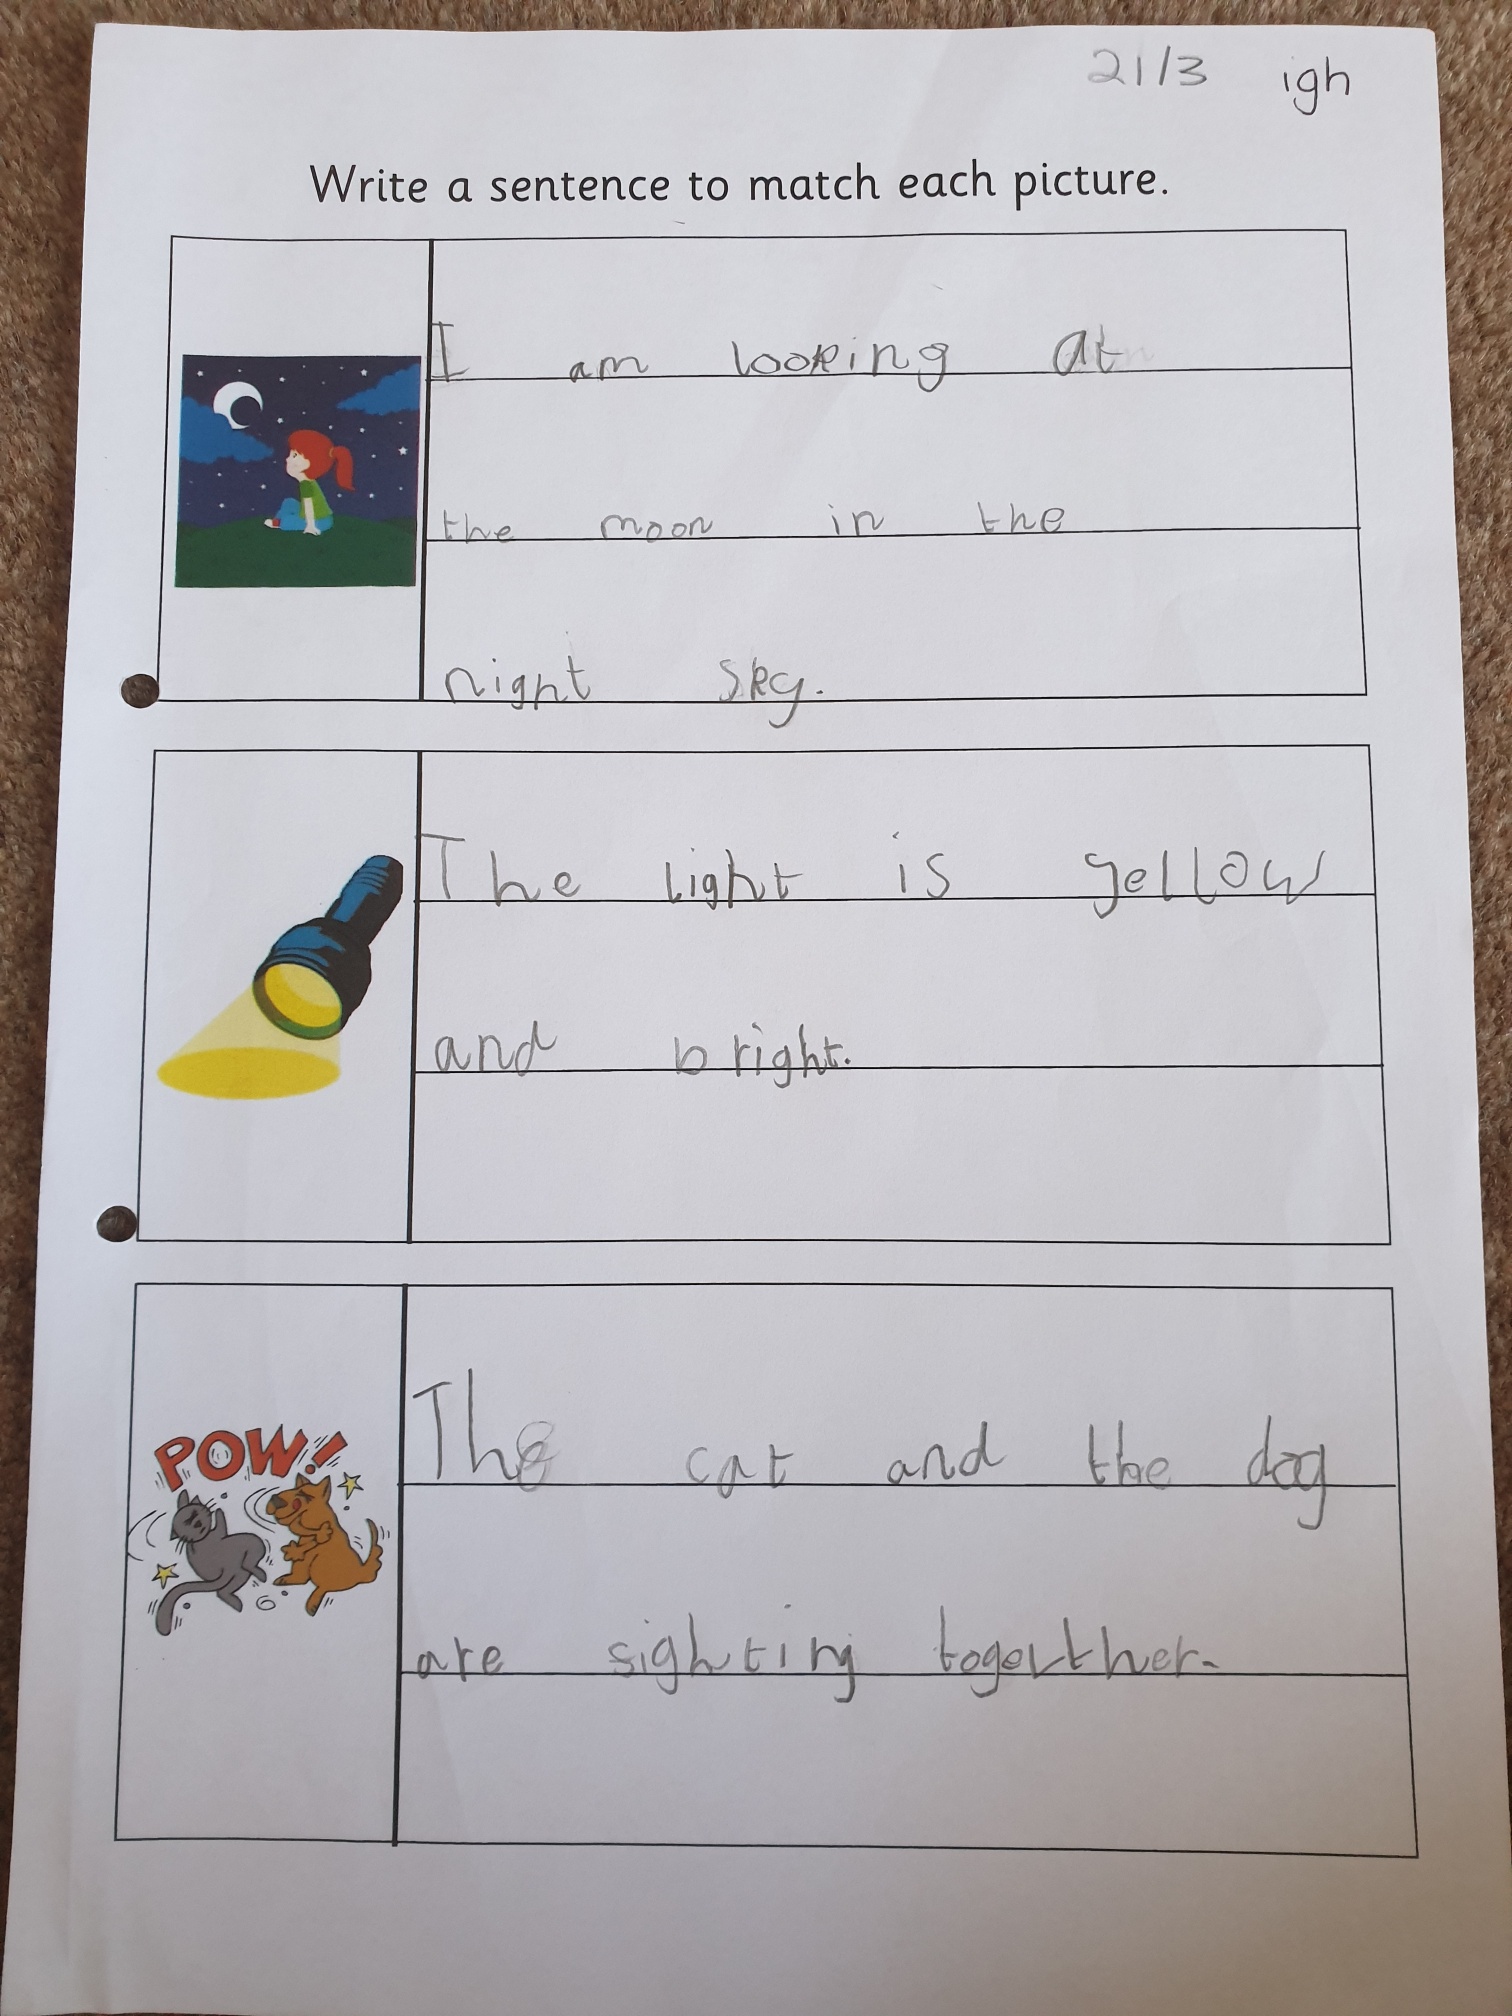 21/3 igh
Write a sentence to match each picture.
I am looking at
the moon in the
night sky.
The light is yellow
and bright.
POW!
The cat and the dog
are sighting together.